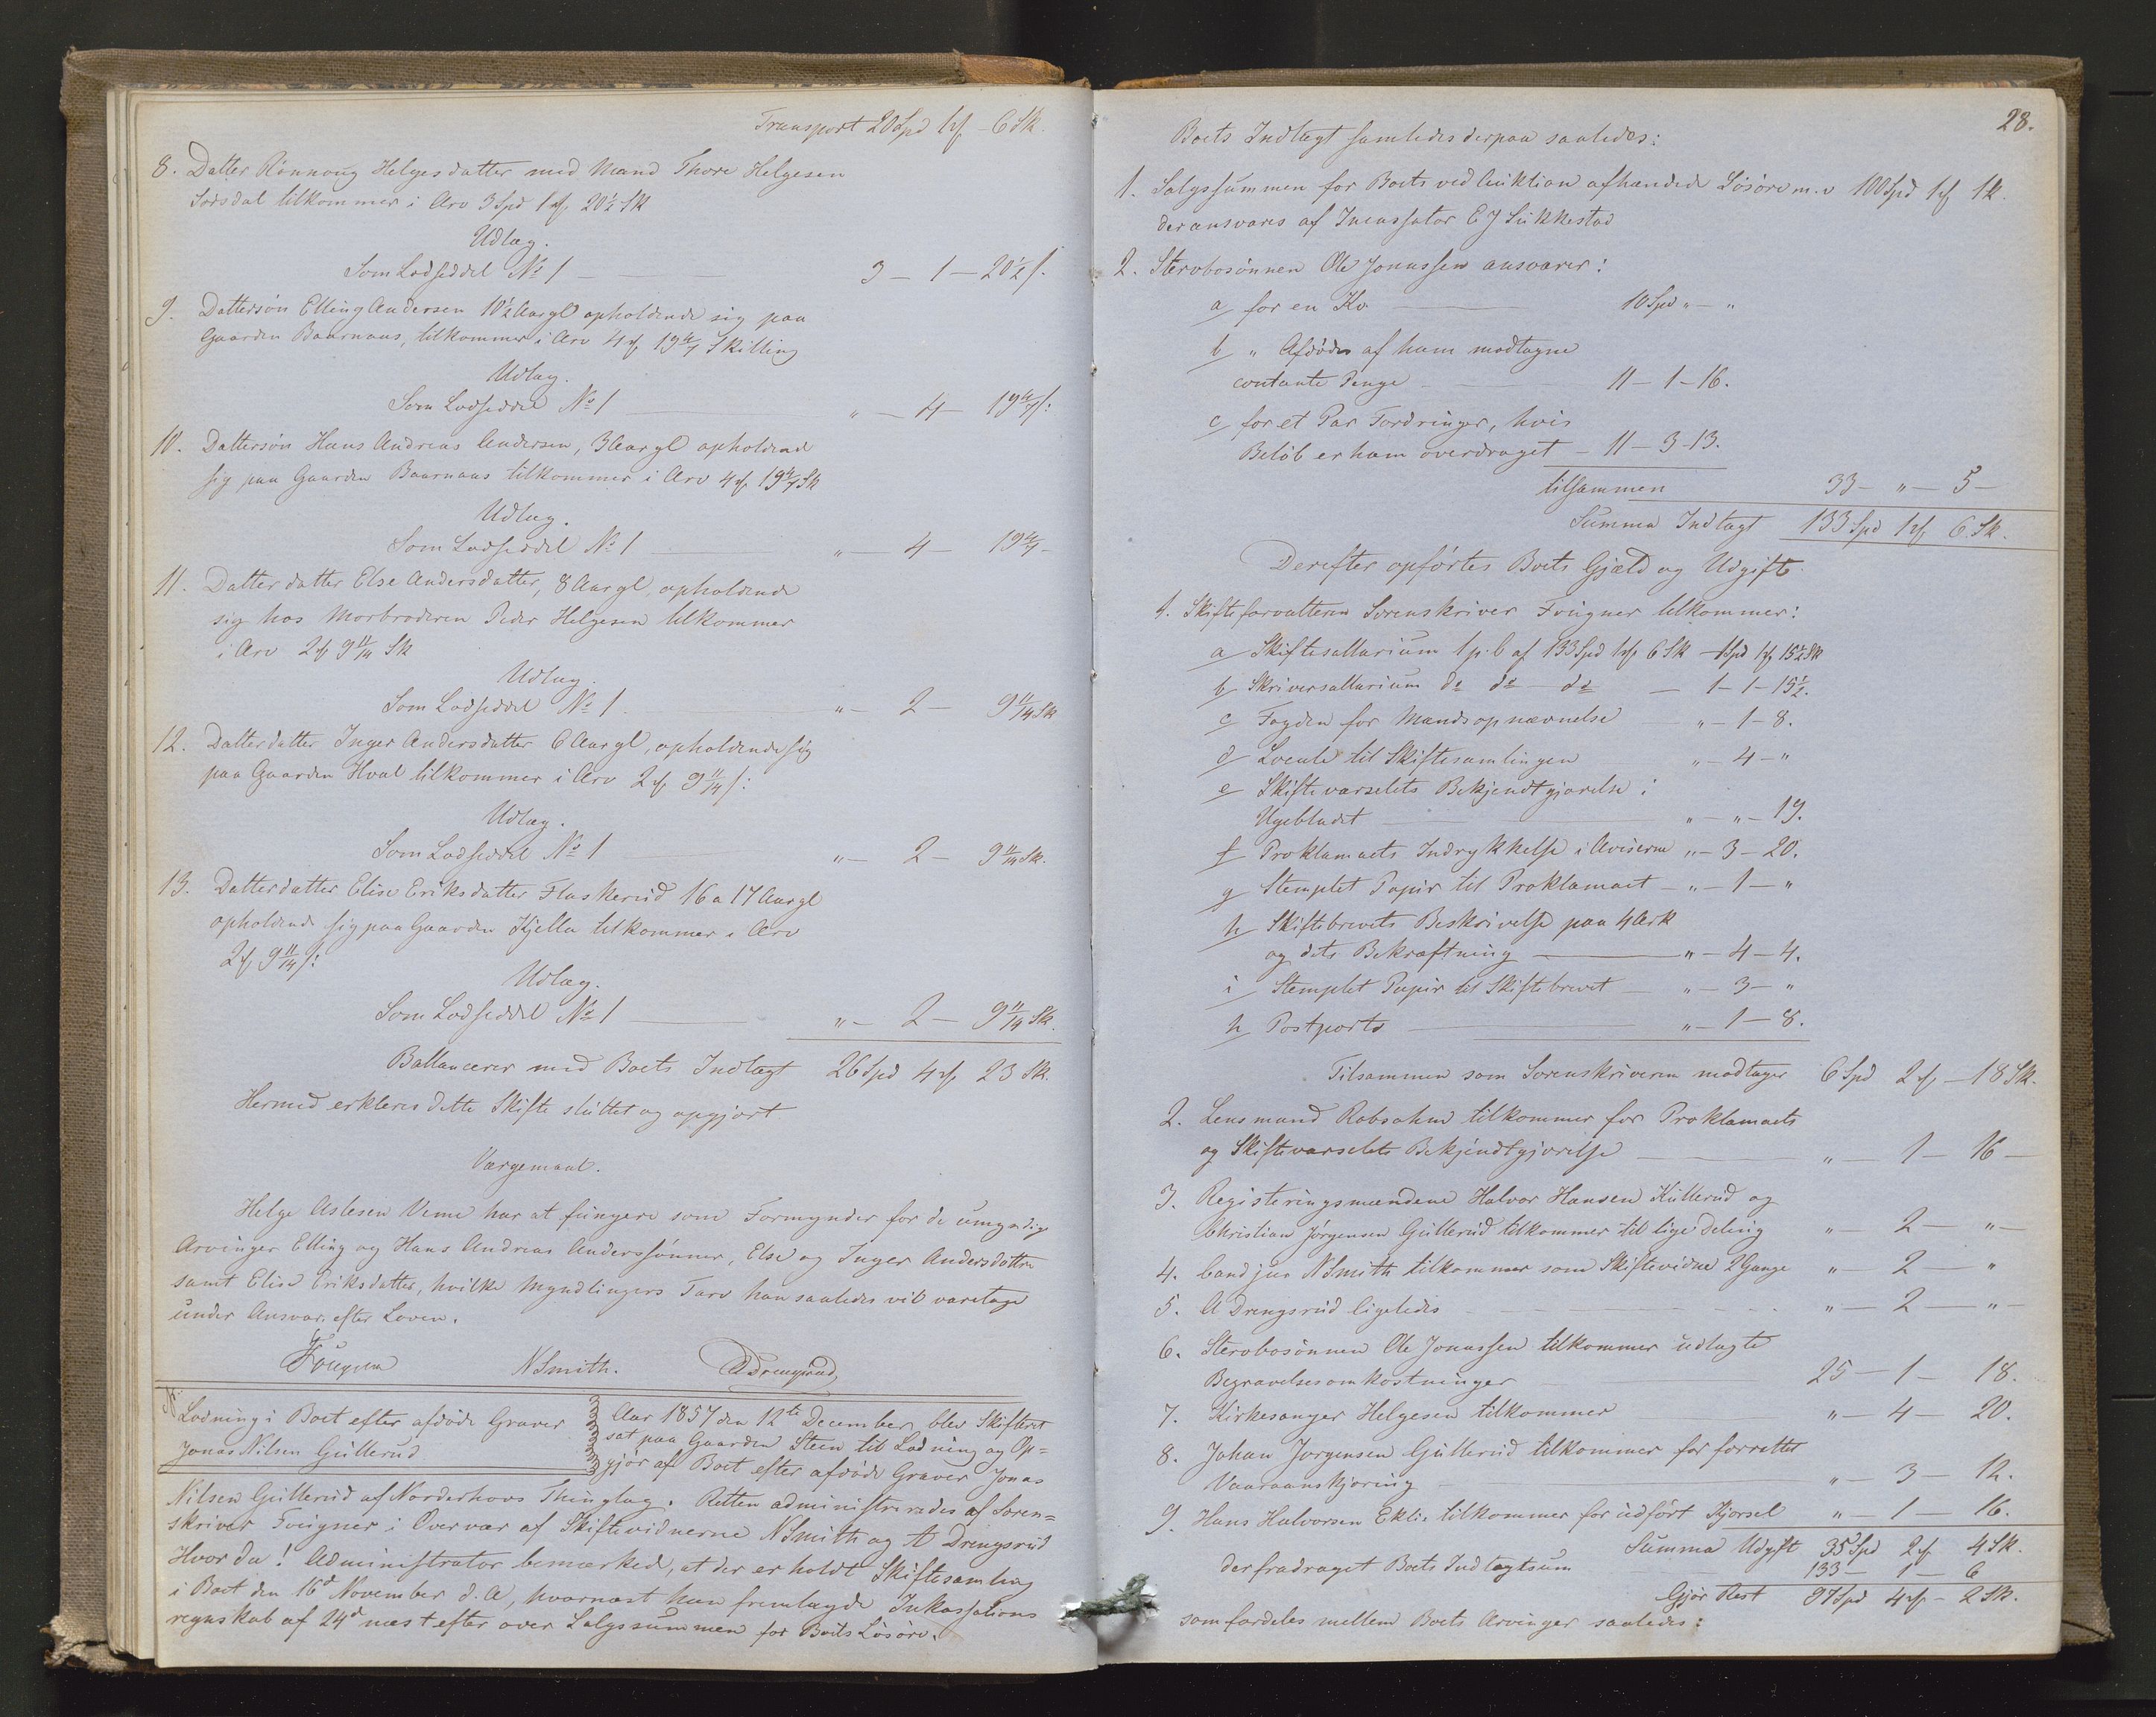 Transport 20 Spd 1 ß 6 Sk.
8. Datter Rönnoug Helgesdatter med Mand Thore Helgesen
Sörsdal tilkommer i Arv 3 Spd 1 ß 20½ Sk
Udlæg.
Som Lodseddel No 1 — 3 – 1 – 20½ ß.
9. Dattersön Elling Andersen 10½ Aar gl opholdende sig paa
Gaarden Baarnaas, tilkommer i Arv 4 ß 19 4/7 Skilling
Udlæg.
Som Lodseddel No 1 — " – 4 – 19 4/7 ß:
10. Dattersön Hans Andreas Andersen, 3 Aar gl opholdend
sig paa Gaarden Baarnaas tilkommer i Arv 4 ß 19 4/7 Sk
Udlæg.
Som Lodseddel No 1 — " – 4 – 19 4/7 –
11. Datterdatter Else Andersdatter, 8 Aar gl, opholdende
sig hos Morbroderen Peder Helgesen tilkommer
i Arv 2 ß 9 11/14 Sk
Udlæg.
Som Lodseddel No 1. — " – 2 – 9 11/14 Sk
12. Datterdatter Inger Andersdatter 6 Aar gl, opholdende sig
paa Gaarden Hval tilkommer i Arv 2 ß 9 11/14 ß:
Udlæg.
Som Lodseddel No 1 — " – 2 – 9 11/14 Sk.
13. Datterdatter Elise Eriksdatter Flaskerud 16 a 17 Aar gl
opholdende sig paa Gaarden Kjella tilkommer i Arv
2 ß 9 11/14 ß:
Udlæg.
Som Lodseddel No 1 — " – 2 – 9 11/14 Sk.
Ballancerer med Boets Indtægt 26 Spd 4 ß 23 Sk.
Hermed erkleres dette Skifte sluttet og opgjort
Værgemaal.
Helge Aslesen Veme har at fungere som Formynder for de umyndige
Arvinger Elling og Hans Andreas Anderssönner, Else og Inger Andersdöttre
samt Elise Eriksdatter, hvilke Myndlingers Tarv han saaledes vil varetage
under Ansvar efter Loven.
Fougner N Smith. A Drengsrud
Lodning i Boet efter afdöde Graver
Jonas Nilsen Gullerud
Aar 1857 den 12te December blev Skifteret
sat paa Gaarden Steen til Lodning og Op=
gjör af Boet efter afdöde Graver Jonas
Nilsen Gullerud af Norderhovs Thinglag. Retten administreredes af Soren=
skriver Fougner i Overvær af Skiftevidnerne N Smith og A Drengsrud
Hvor da! Administrator bemærked, at der er holdt Skiftesamling
i Boet den 16d November d. A, hvornæst han fremlagde Inkassations
regnskab af 24d næst efter over Salgssummen for Boets Lösöre.
28.
Boets Indtægt samledes derpaa saaledes:
1. Salgssummen for Boets ved Auktion afhændede Lösöre m. v 100 Spd 1 ß 1 k.
der ansvares af Incassator E J Sukkestad
2. Stervbosönnen Ole Jonassen ansvarer:
a/ for en Ko — 10 Spd " – "
b/ " Afdödes af ham modtagne
contante Penge — 11 – 1 – 16.
c/ for et Par Fordringer, hvis
Belöb er ham overdraget – 11 – 3 – 13.
tilsammen 33 – " – 5 –
Summa Indtægt 133 Spd 1 ß 6 Sk.
Derefter opförtes Boets Gjæld og Udgift.
1. Skifteforvalteren Sorenskriver Fougner tilkommer:
a/ Skiftesallarium 1 p. C af 133 Spd 1 ß 6 Sk – 1 Spd 1 ß 15½ Sk
b/ Skriversallarium do do do — 1 – 1 – 15½.
c/ Fogden for Mandsopnævnelse " – 1 – 8.
d/ Locale til Skiftesamlingen " – 4 – "
e/ Skiftevarselets Bekjendtgjörelse i
Ugebladet — " – " – 19.
f/ Proklamaets Indrykkelse i Aviserne " – 3 – 20.
g/ Stemplet Papir til Proklamaet – " – 1 – "
h/ Skiftebrevets Beskrivelse paa 4 Ark
og dets Bekræftning — " – 4 – 4.
i/ Stemplet Papir til Skiftebrevet — " – 3 – "
h/ Postporto — " – 1 – 8.
Tilsammen som Sorenskriveren modtager 6 Spd 2 ß – 18 Sk.
2. Lensmand Rabsahm tilkommer for Proklamaets
og Skiftevarselets Bekjendtgjörelse — " – 1 – 16 –
3. Registeringsmændene Halvor Hansen Küllerud og
Christian Jörgensen Gullerud tilkommer til lige Deling " – 2 – " –
4. Cand jur N Smith tilkommer som Skiftevidne 2 Gange " – 2 – "
5. A Drengsrud ligeledes — " – 2 – " –
6. Stervbosönnen Ole Jonassen tilkommer udlagte
Begravelsesomkostninger 25 – 1 – 18.
7. Kirkesanger Helgesen tilkommer " – 4 – 20.
8. Johan Jorgensen Gullerud tilkommer for forrettet
Vaaraanskjöring — " – 3 – 12.
9. Hans Halvorsen Eklie tilkommer for udfört Kjorsel " – 1 – 16.
Summa Udgift 35 Spd 2 ß 4 Sk.
der fradraget Boets Indtægtsum 133 – 1 – 6
Gjör Rest 97 Spd 4 ß – 2 Sk.
som fordeles mellem Boets Arvinger saaledes: